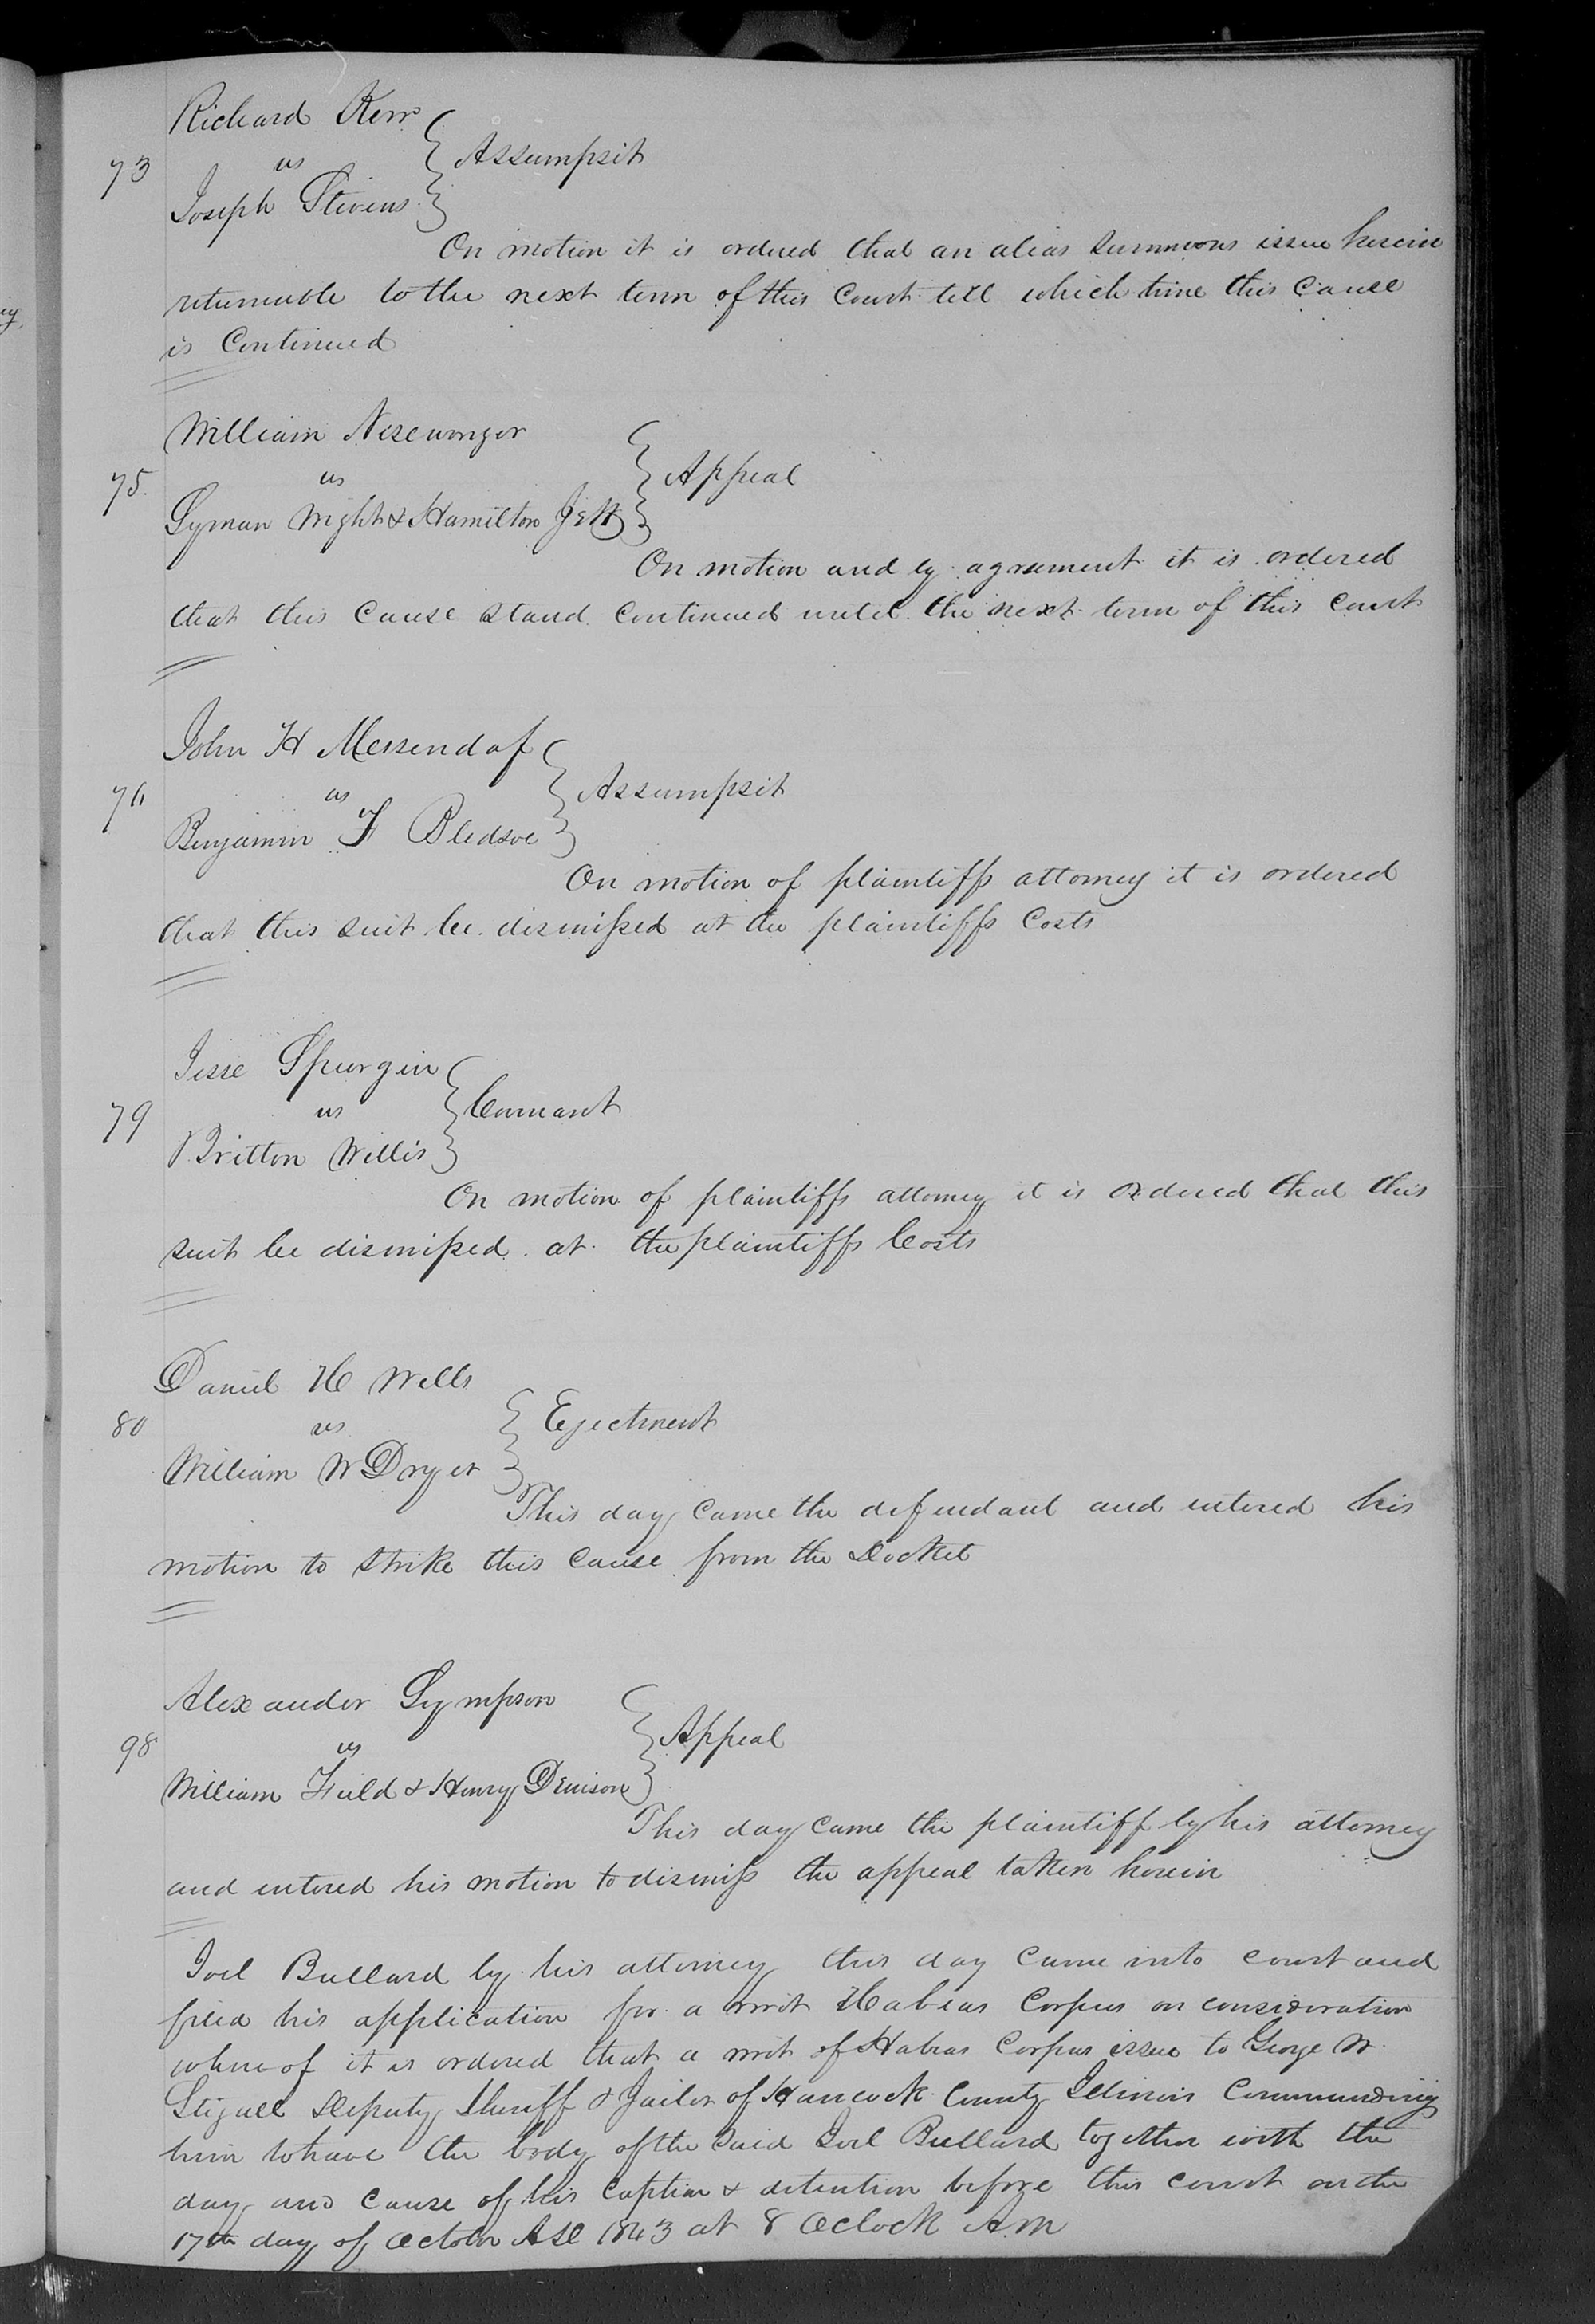 Richard Kerr
73 vs Assumpsit
Joseph Stevens
On motion it is ordered that an alias summons issue herein
returnable to the next term of this Court till which time this Cause
is Continued
William Nisewonger
75. vs Appeal
Lyman Wright & Hamilton Jett
On motion and by agreement it is ordered
that this Cause stand Continued until the next term of this Court
John H Messendaf
76 vs Assumpsit
Benjamin F Bledsoe
On motion of plaintiffs attorney it is ordered
that this suit be dismissed at the plaintiffs Costs
Jesse Spurgin
79 vs Covenant
Britton Willis
On motion of plaintiffs attorney it is ordered that this
suit be dismissed at the plaintiffs Costs
Daniel H Wells
80 vs Ejectment
William W Dryer
This day came the defendant and entered his
motion to strike this cause from the Docket
Alexander Sympson
98 vs Appeal
William Field & Henry Denison
This day came the plaintiff by his attorney
and entered his motion to dismiss the appeal taken herein
Joel Bullard by his attorney this day came into court and
filed his application for a writ Habeas Corpus on consideration
whereof it is ordered that a writ of Habeas Corpus issue to George W
Stigall Deputy Sheriff & Jailor of Hancock County Illinois Commanding
him to have the body of the said Joel Bullard together with the
day and cause of his caption & detention before this court on the
17th day of October AD 1843 at 8 Oclock A.M